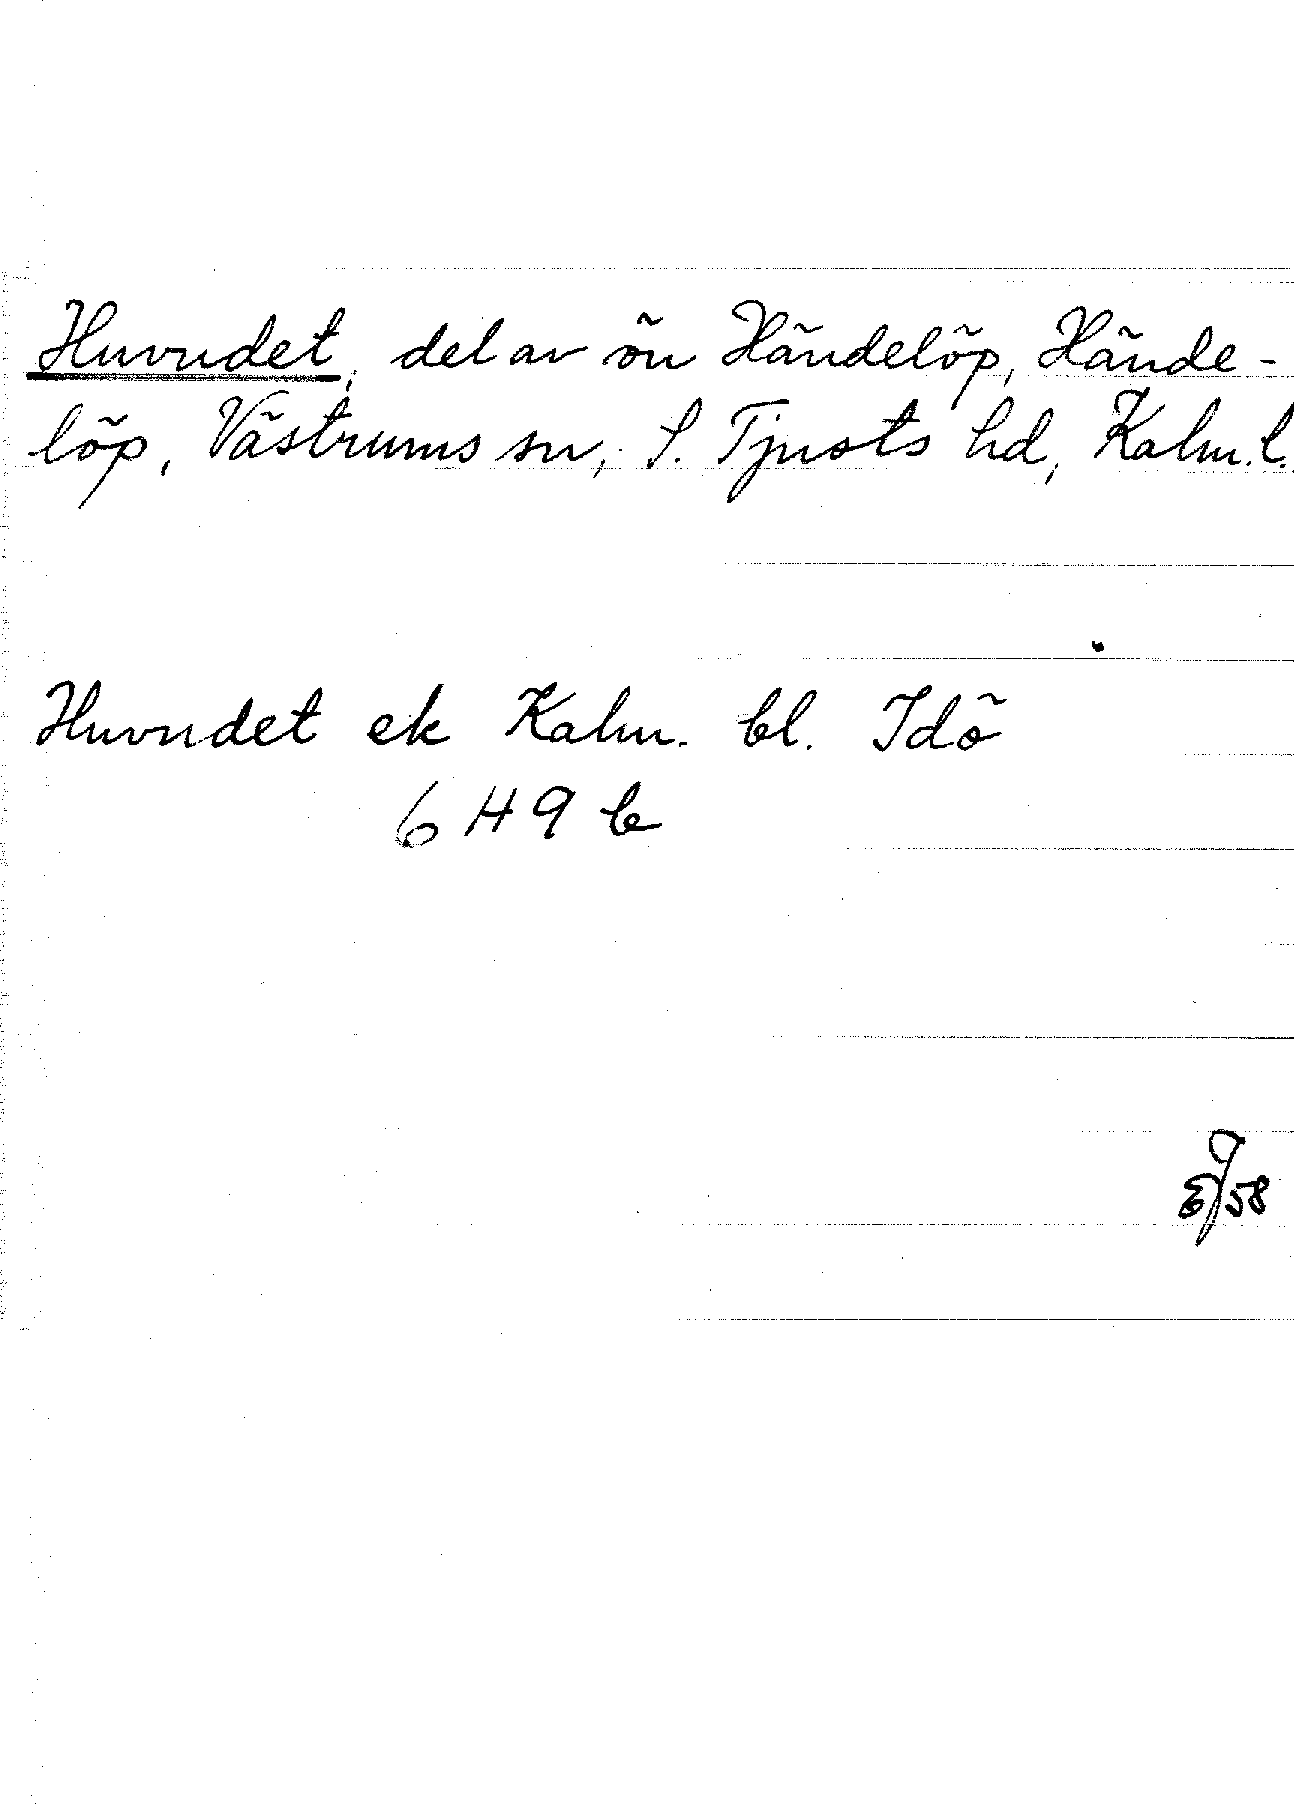 Huvudet, del av ön Händelöp, Hände-
löp, Västrums sn, S. Tjusts hd, Kalm. l.
Huvudet ek Kalm. bl. Idö
6 H 9 b
58